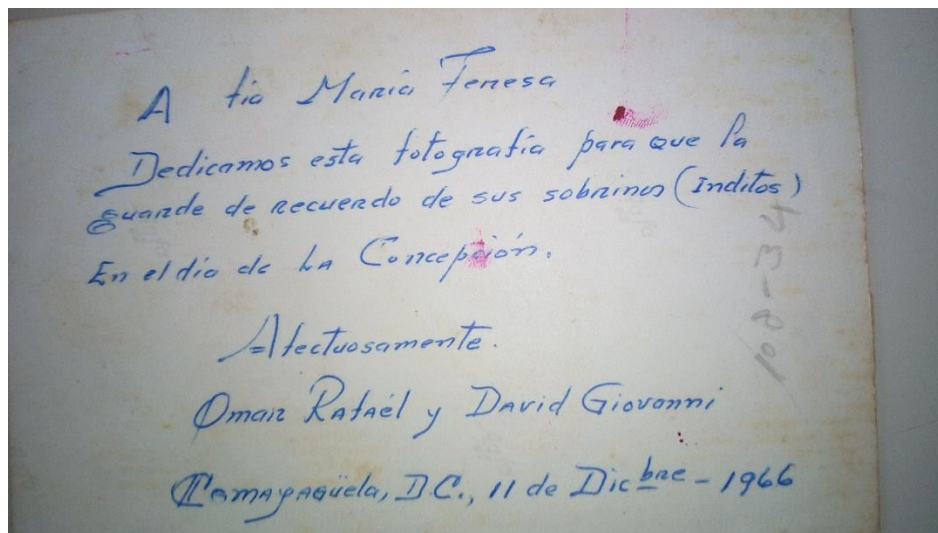 A tia María Teresa
Dedicamos esta fotografía para que la
guarde de recuerdo de sus sobrinos (Inditos)
En el día de La Concepción.
Afectuosamente.
Omar Rafaél y David Giovanni
Comayagüela, D.C., 11 de Dicbre - 1966
100-34